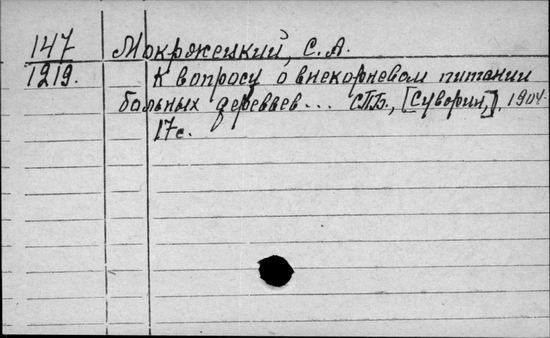 147 Мокржецкий, С.А.
1219. К вопросу о внекорневом питании
больных деревьев... СПБ., [Суворин], 1904.
17с.